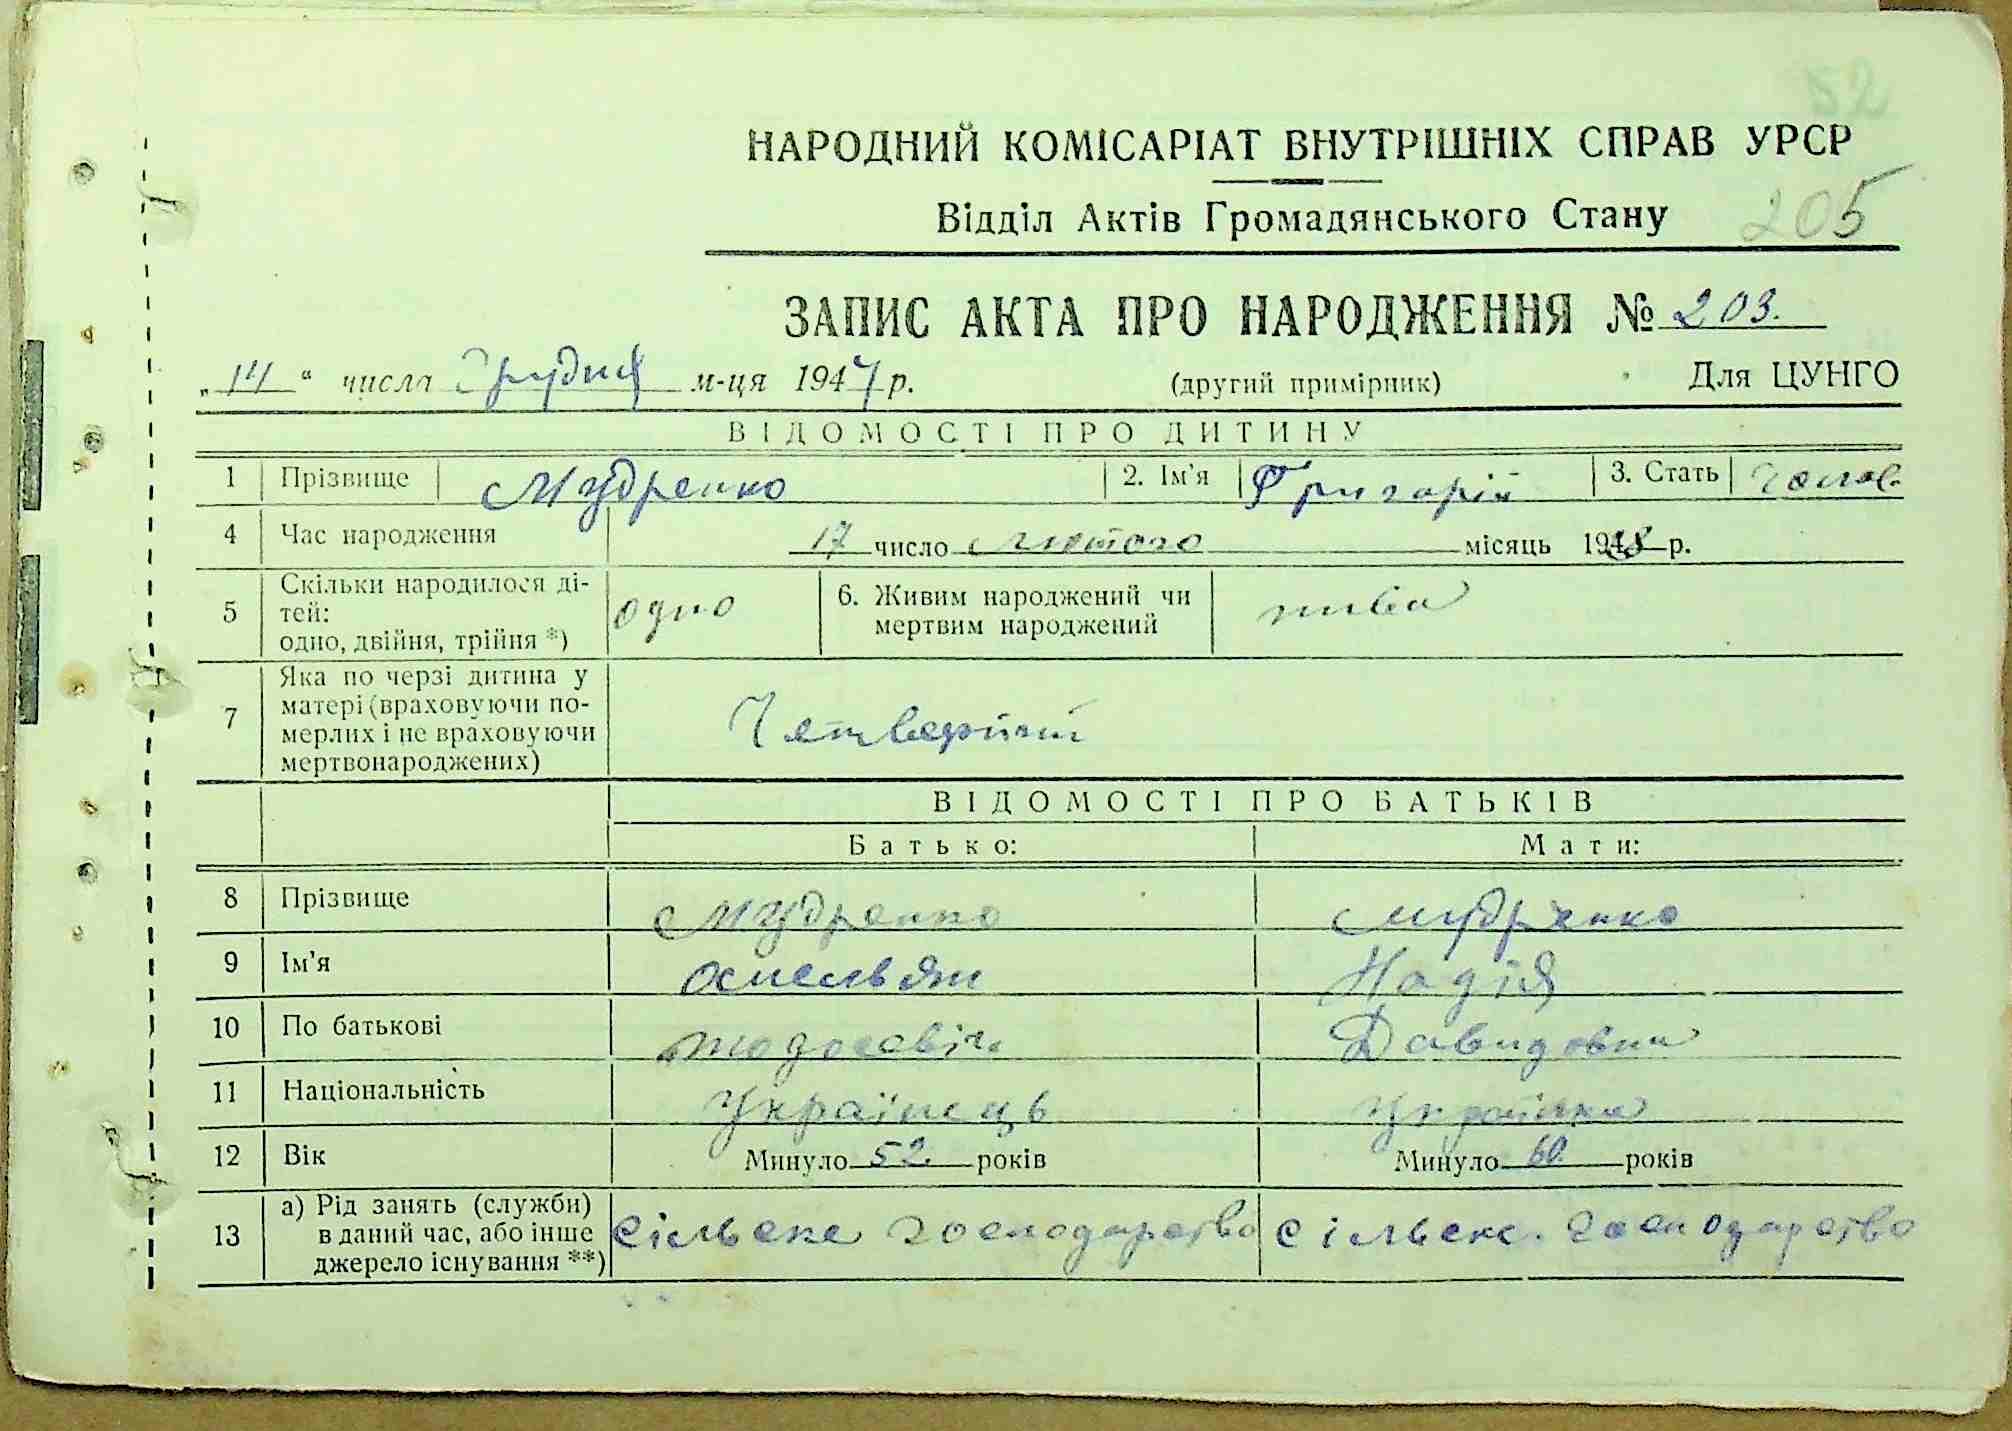 52
НАРОДНИЙ КОМІСАРІАТ ВНУТРІШНІХ СПРАВ УРСР
Відділ Актів Громадянського Стану 205
ЗАПИС АКТА ПРО НАРОДЖЕННЯ № 203.
„14“ числа Грудня м-ця 1947 р. (другий примірник) Для ЦУНГО
ВІДОМОСТІ ПРО ДИТИНУ
1 Прізвище Мудренко 2. Ім'я Григорій 3. Стать чолов.
4 Час народження 17 число лютого місяць 19 р.
5 Скільки народилося ді-
тей:
одно, двійня, трійня *) одно 6. Живим народжений чи
мертвим народжений
7 Яка по черзі дитина у
матері (враховуючи по-
мерлих і не враховуючи
мертвонароджених) Четвертий
ВІДОМОСТІ ПРО БАТЬКІВ
Батько: Мати:
8 Прізвище Мудренко Мудренко
9 Ім'я Омельян Надія
10 По батькові Тодосевіч Давидовна
11 Національність Українець Українка
12 Вік Минуло 52. років Минуло 60. років
13 а) Рід занять (служби)
в даний час, або інше
джерело існування **) сільске господарство сільск. господарство